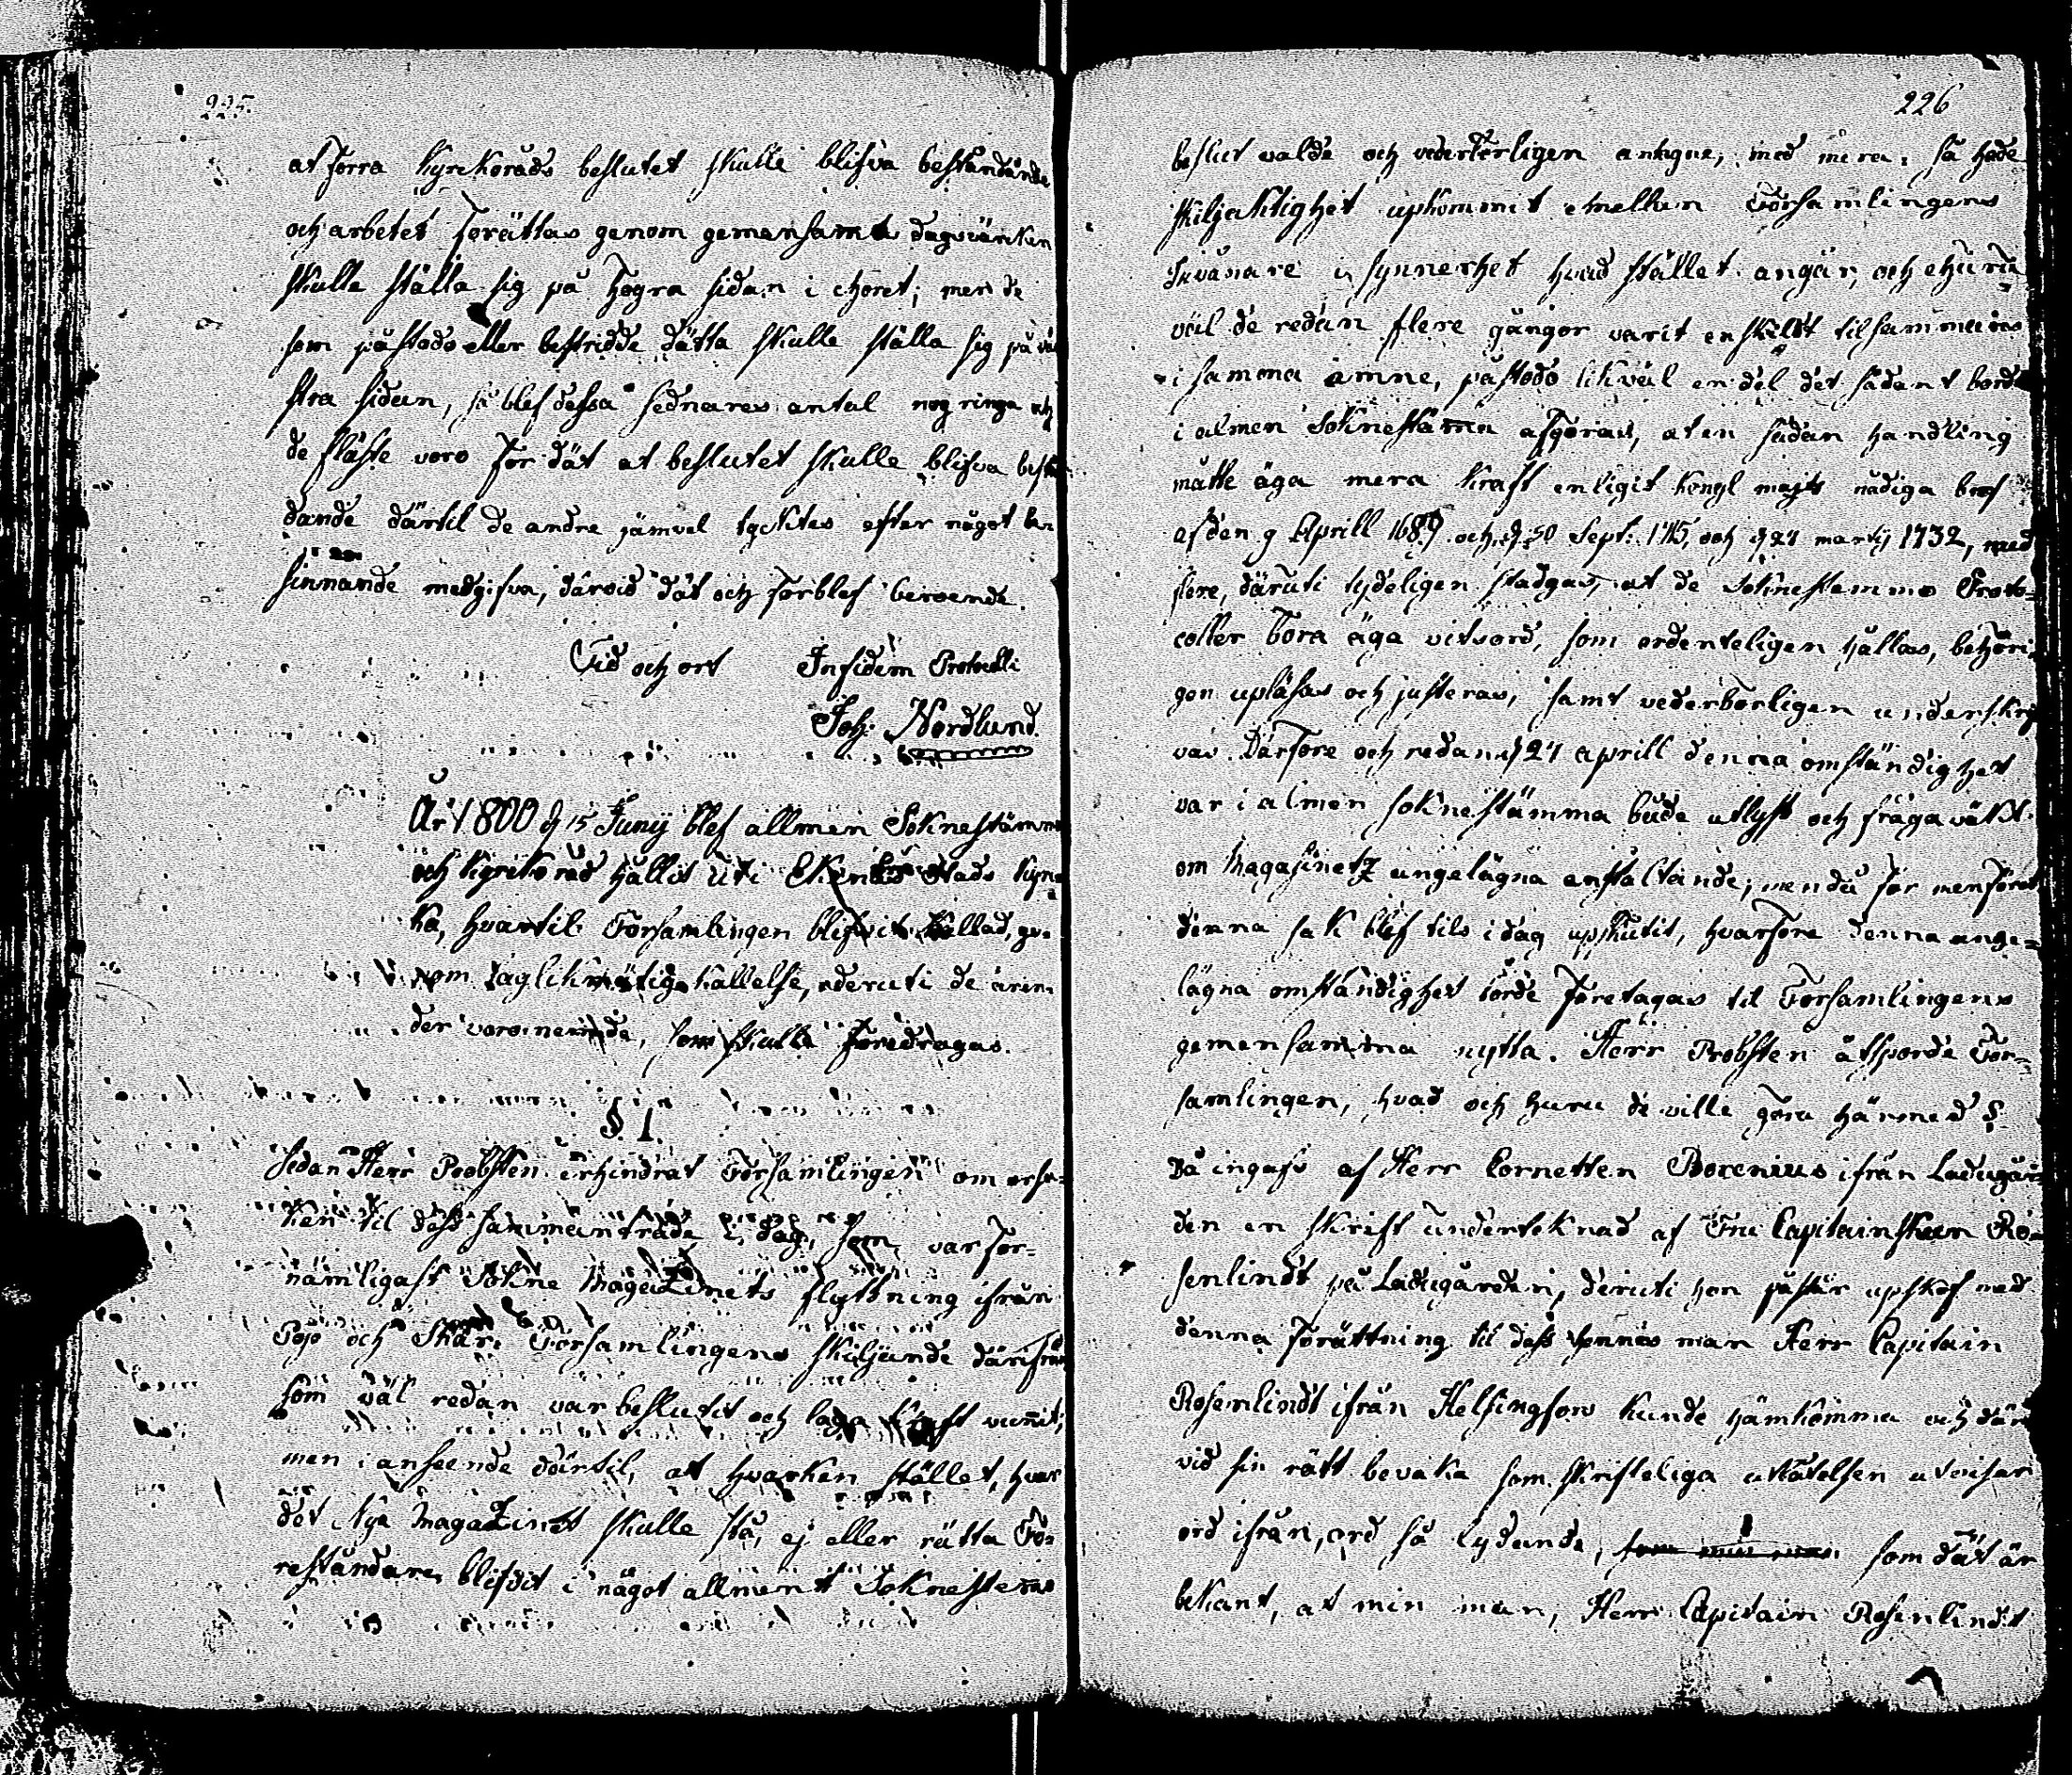 225.
at förra Kyrckoråds beslutet skulle blifva beståndande
och arbetet förättas genom gemensama dagsvärken
skulle ställa sig på högra sidan i choret; men de
som påstodo eller bestridde dätta skulle ställa sig på vän
stra sidan, så blef dessa sednares antal nog ringa och
de fläste voro för dät at beslutet skulle blifva bestån
dande därtil de andre jämvel tycktes efter något be
sinnande medgifva, därvid dät och förblef beroende.
Tid och ort In fidem Protocolli
Joh: Nordlund.
År 1800 d 15 Junij blef allmen Soknestämma
och kyrkoråd hållit uti Ekenäs Stads kyrc
ka, hvartil Församlingen blifvit kallad, ge=
nom laglikmätig kallelse, deruti de ären
der voro nemnde, som skulle föredragas.
§. 1.
Sedan Herr Probsten erhindrat Församlingen om orsa=
ken til dess sammanträde i dag, som var för=
nämligast Sokne Magazinets flyttning ifrån
Pojo och Skär. Församlingens skiljande därifrån
som väl redan var beslutit och laga kraft vunnit;
men i anseende därtil, at hvarken stället, hvar
det Nya Magazinet skulle stå, ej eller rätta Fö=
reståndare, blifvit i något allment Soknestemo
226
beslut valde och vederbörligen antagne, med mera, så hade
skiljaktighet upkommit emellan Församlingens
Invånare i synnerhet hvad stället angår, och ehuru
väl de redan flere gångor varit enskildt tilsammans
i samma ämne, påstodo likväl en del det sådant bordt
i almen Soknestämma afgöras, at en sådan handling
måtte äga mera kraft enligit Kongl majts nådiga bref
af den 9 Aprill 1689 och d 30 Sept: 1715, och d 27 martij 1732, med
flere, däruti tydeligen stadgas, at de Soknestemmo Proto=
coller böra äga vitsord, som ordenteligen hållas, behöri
gen upläsas och justeras, samt vederbörligen underskrif
vas. Därföre och redan d 27 aprill denna omständighet
var i almen soknestämma både utlyst och fråga väkt
om Magasinetz angelägna anstaltande; men då för menföret
denna sak blef tils i dag upskutit, hvarföre denna ange=
lägna omständighet borde företagas til Församlingens
gemensamma nytta. Herr Probsten åtsporde För=
samlingen, hvad och huru de ville göra härmed §.
Då ingafs af Herr Cornetten Borenius ifrån Ladugår=
den en skrift underteknad af Fru Capitainskan Ro=
senlindt på Ladugården, deruti hon påstår upskof med
denna förättning til dess hennes man Herr Capitain
Rosenlindt ifrån Helsingfors kunde hämkomma och där
vid sin rätt bevaka som skrifteliga utlåtelsen utvisar
ord ifrån, ord så lydande, som dät är
bekant, at min man, Herr Capitain Rosenlindt